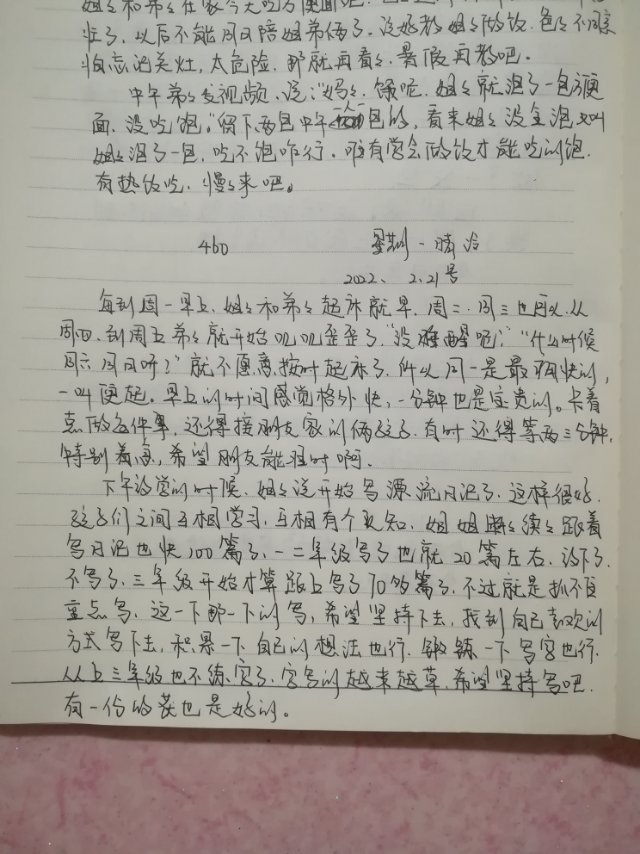 姐々和弟々在家今天吃方便面吧
忙了，以后不能周日陪姐弟俩了。没好教姐々做饭，爸々不同意
怕忘记关灶，太危险，那就再看々，暑假再教吧。
中午弟々发视频，说:“妈々，饿呢，姐々就泡了一包方便
面，没吃饱。”留下两包中午一人一包的，看来姐々没全泡，就
姐々泡了一包，吃不饱咋行。唯有学会做饭才能吃的饱，
有热饭吃，慢々来吧。
460 星期一 晴 冷
2022、2.21号
每到周一早上，姐々和弟々起床就早，周二、周三也可以，从
周四，到周五弟々就开始叽叽歪歪了，“没睡醒呢”，“什么时候
周六周日呀？”就不愿意按时起床了，所以周一是最痛快的，
一叫便起。早上的时间感觉格外快，一分钟也是宝贵的。卡着
点做各件事，还得接朋友家的俩孩子，有时还得等两三分钟，
特别着急，希望朋友能准时啊。
下午放学的时候，姐々说开始写漂流日记了，这样很好，
孩子们之间互相学习，互相有个认知，姐姐断々续々跟着
写日记也快100篇了，一二年级写了也就20篇左右，放下了，
不写了，三年级开始才算跟上写了70多篇了，不过就是抓不住
重点写，这一下那一下的写，希望坚持下去，找到自己喜欢的
方式写下去，积累一下自己的想法也行，锻鍊一下写字也行，
从上三年级也不练字了，字写的越来越草，希望坚持写吧，
有一份的获也是好的。